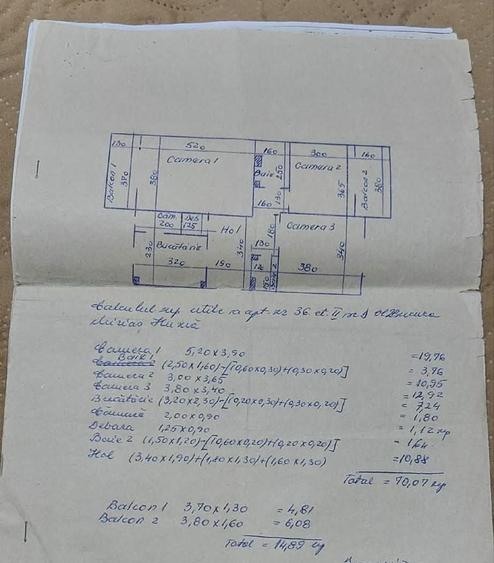 130 520 160 300 160
Camera 1 Camera 2
Balcon 1 370 380 Baie 250 365 Balcon 2 380
160 130
Cam. 200 Deb 125 Hol 180 Camera 3
230 Bucătărie 340 130 340
320 190 120 380
150 Baie 2
Calculul sup. utile a apt. nr 36 et. II
Camera 1 5,20x3,90 =19,76
Baie 1 (2,50x1,60)-[(0,60x0,30)+(0,30x0,20)] = 3,76
Camera 2 3,00x3,65 =10,95
Camera 3 3,80x3,40 =12,92
Bucătărie (3,20x2,30)-[(0,20x0,30)+(0,30x0,20)] = 7,24
Cămară 2,00x0,90 = 1,80
Debara 1,25x0,90 = 1,12 mp
Baie 2 (1,50x1,20)-[(0,60x0,20)+(0,20x0,20)] = 1,64
Hol (3,40x1,90)+(1,80x1,30)+(1,60x1,30) =10,88
Total = 70,07 mp
Balcon 1 3,70x1,30 = 4,81
Balcon 2 3,80x1,60 = 6,08
Total = 14,89 mp